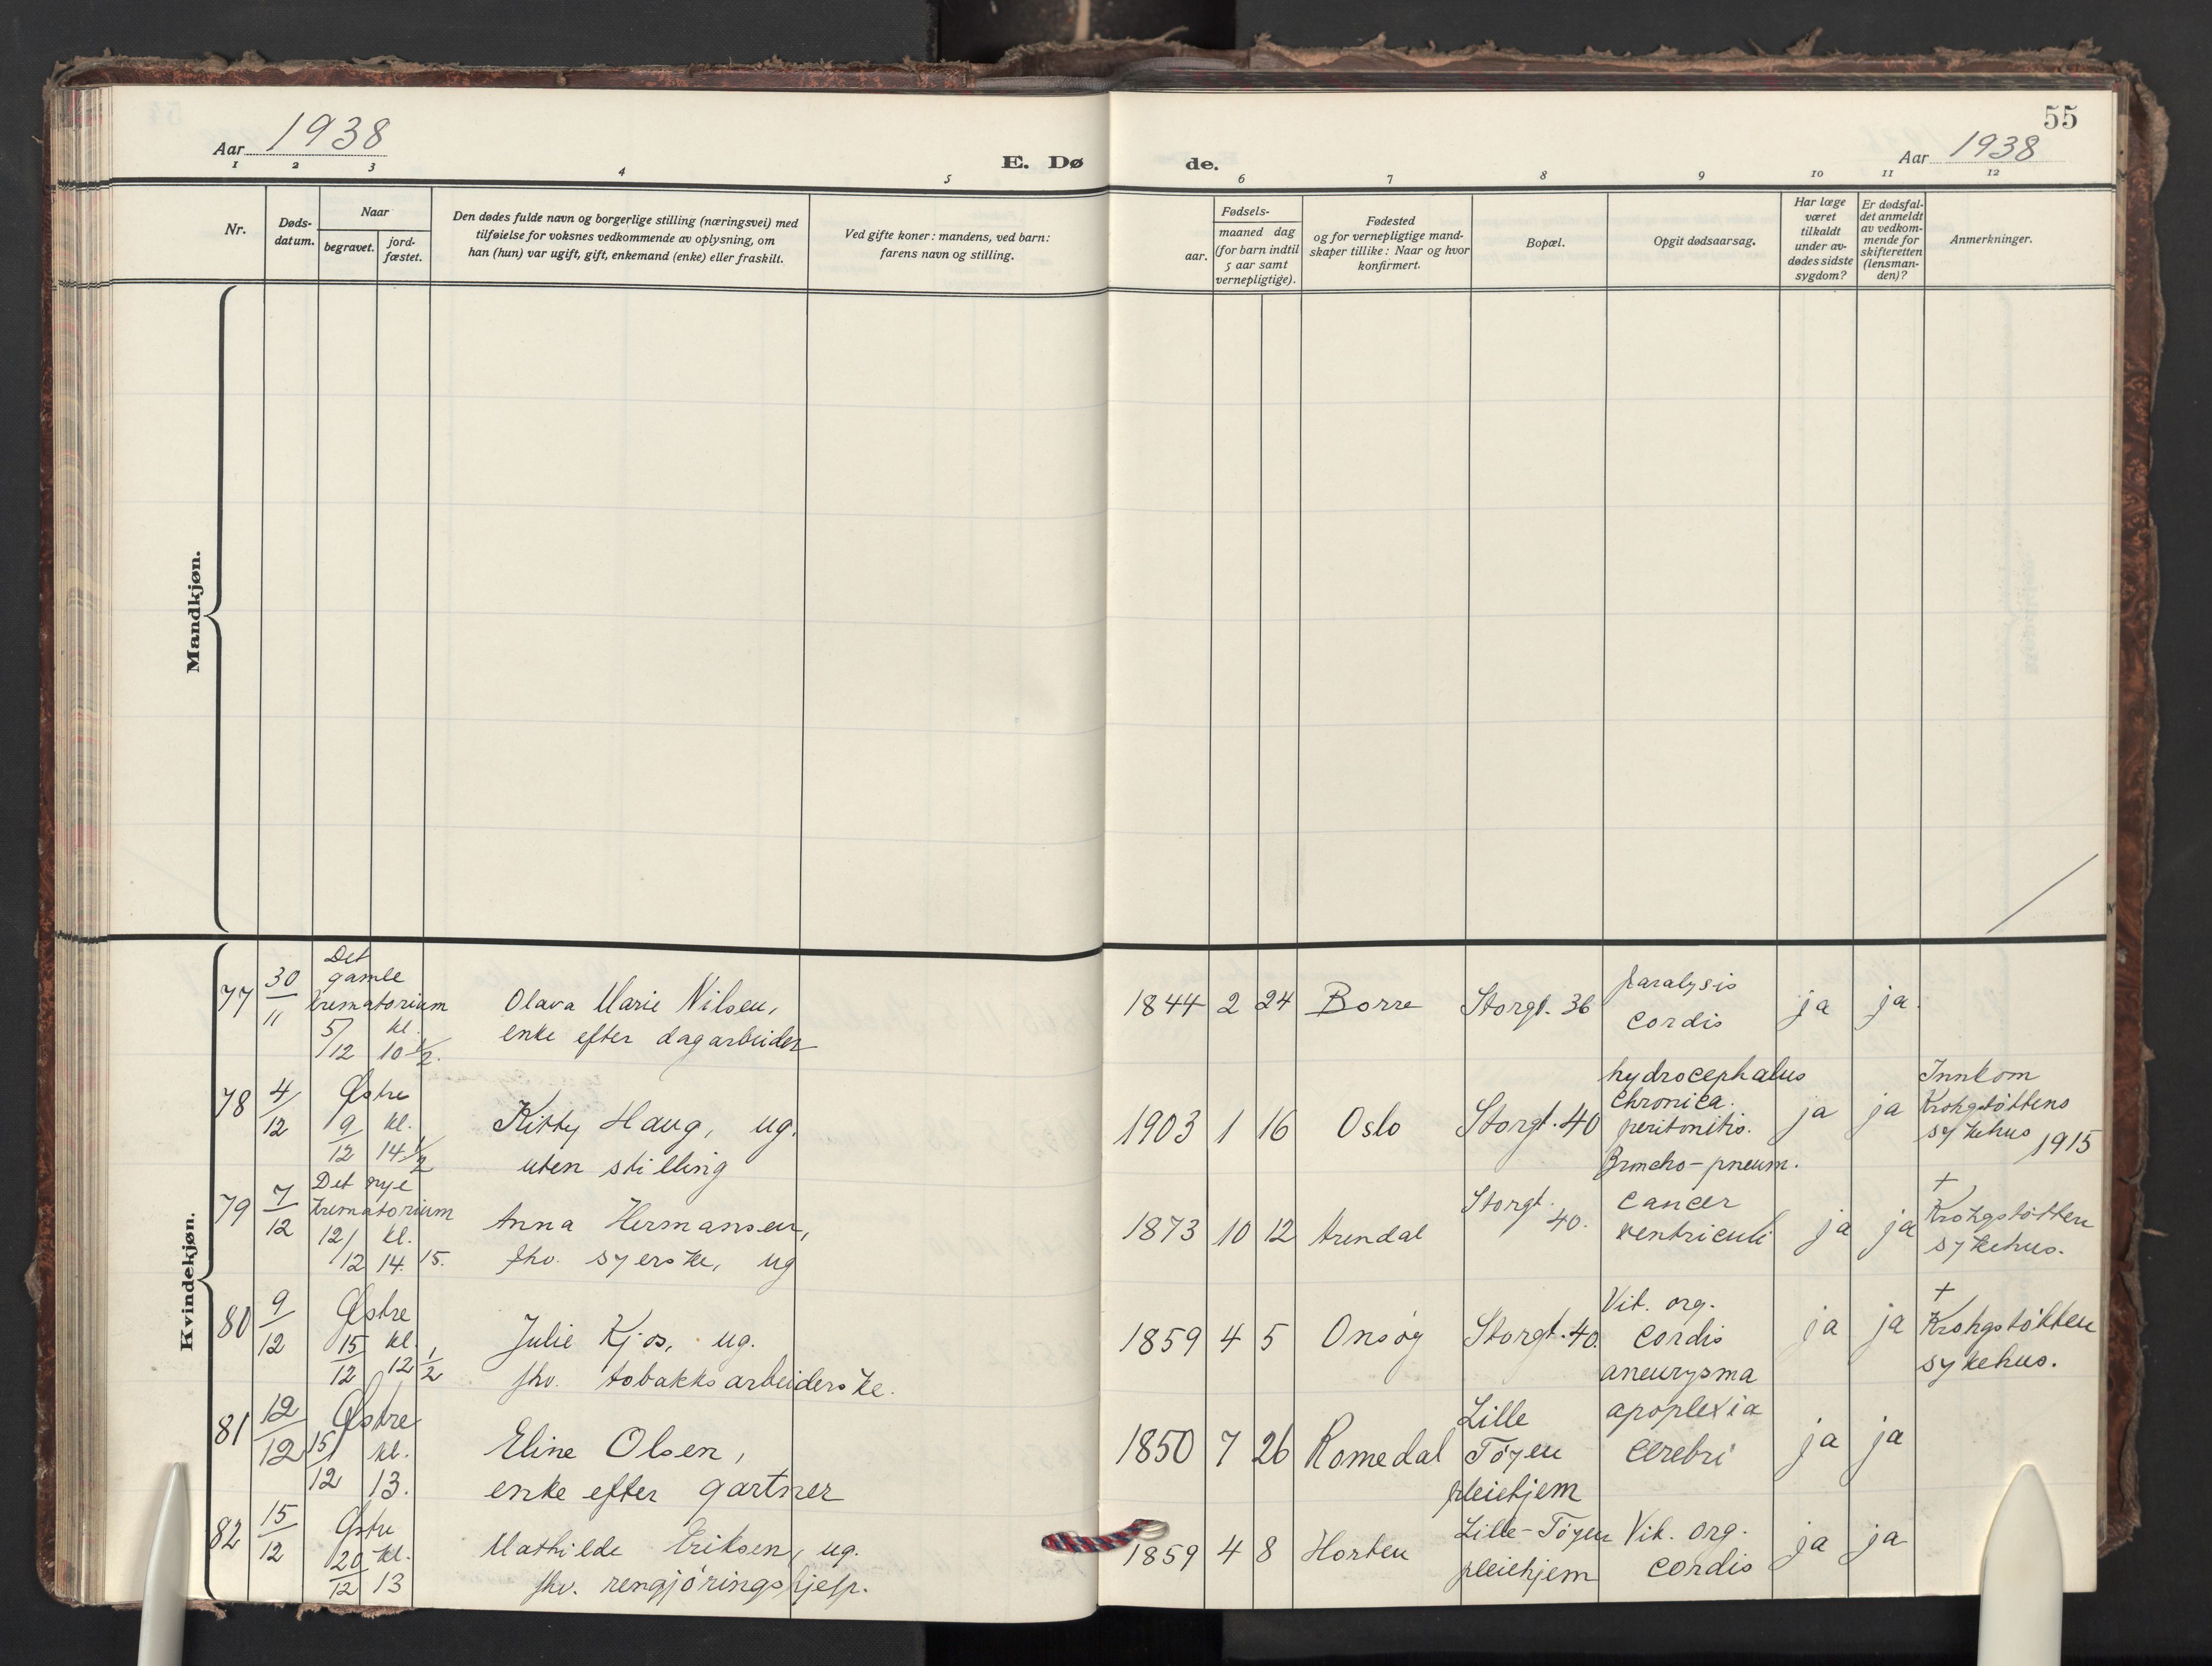 55
Aar 1938
E. Dø
de.
Aar 1938
1 2 3 4 5 6 7 8 9 10 11 12
Nr.
Døds-
datum.
Naar
begravet.
jord-
fæstet.
Den dødes fulde navn og borgerlige stilling (næringsvei) med
tilføielse for voksnes vedkommende av oplysning, om
han (hun) var ugift, gift, enkemand (enke) eller fraskilt.
Ved gifte koner: mandens, ved barn:
farens navn og stilling.
Fødsels-
aar.
maaned dag
(for barn indtil
5 aar samt
vernepligtige).
Fødested
og for vernepligtige mand-
skaper tillike: Naar og hvor
konfirmert.
Bopæl.
Opgit dødsaarsag.
Har læge
været
tilkaldt
under av-
dødes sidste
sygdom?
Er dødsfal-
det anmeldt
av vedkom-
mende for
skifteretten
(lensman-
den)?
Anmerkninger.
Mandkjøn.
Kvindekjøn.
77
30/11
Det
gamle
krematorium
5/12 kl. 10 1/2.
Olava Marie Nilsen,
enke efter dagarbeider
1844 2 24
Borre
Storgt. 36
paralysis
cordis
ja
ja.
78
4/12
Østre
9/12 kl. 14 1/2
Kitty Haug, ug.
uten stilling
1903 1 16
Oslo
Storgt. 40
hydrocephalus
chronica.
peritonitis.
Broncho-pneum.
ja
ja
Innkom
Krohgstøttens
sykehus 1915
79
7/12
Det nye
krematorium
12/12 kl. 14. 15.
Anna Hermansen,
fhv. syerske, ug
1873 10 12
Arendal
Storgt.
40.
cancer
ventriculi
ja
ja
+
Krohgstøtten
sykehus.
80
9/12
Østre
15/12 kl. 12 1/2
Julie Kjos, ug.
fhv. tobakksarbeiderske.
1859 4 5
Onsøy
Storgt. 40.
Vit. org.
cordis
aneurysma
ja
ja
+
Krohgstøtten
sykehus.
81
12/12
Østre
15/12 kl. 13.
Eline Olsen,
enke efter gartner
1850 7 26
Romedal
Lille
Tøyen
pleiehjem
apoplexia
cerebri
ja
ja
82
15/12
Østre
20/12 kl. 13
Mathilde Eriksen, ug.
fhv. rengjøringshjelp.
1859 4 8
Horten
Lille-Tøyen
pleiehjem
Vit. org.
cordis
ja
ja